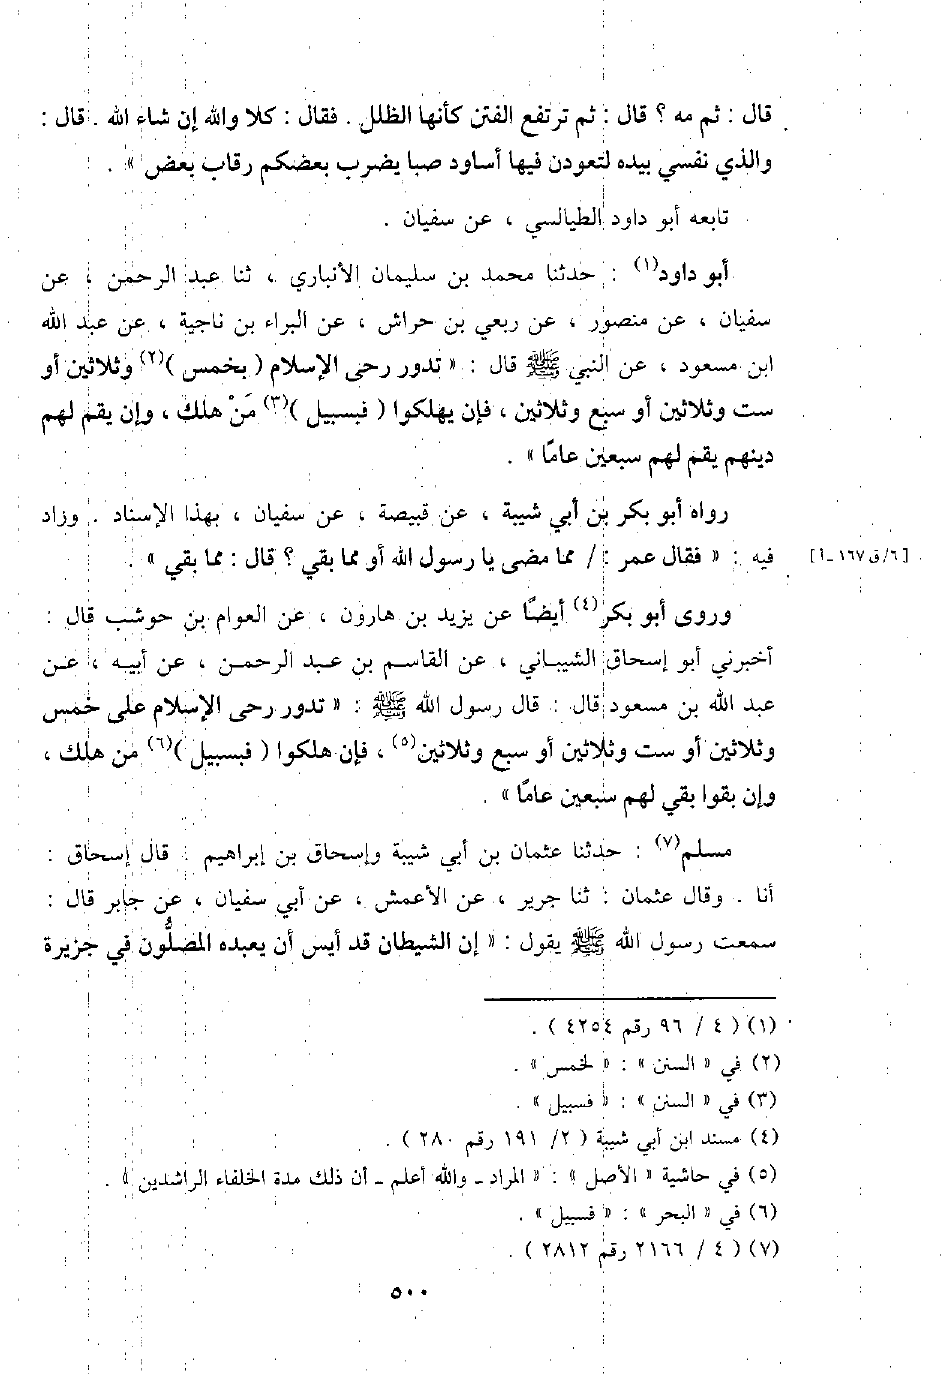 قال : ثم مه ؟ قال : ثم ترتفع الفتن كأنها الظلل . فقال : كلا والله إن شاء الله . قال :
والذي نفسي بيده لتعودن فيها أساود صبا يضرب بعضكم رقاب بعض » .
تابعه أبو داود الطيالسي ، عن سفيان .
أبو داود(١) : حدثنا محمد بن سليمان الأنباري ، ثنا عبد الرحمن ، عن
سفيان ، عن منصور ، عن ربعي بن حراش ، عن البراء بن ناجية ، عن عبد الله
ابن مسعود ، عن النبي ﷺ قال : « تدور رحى الإسلام ( بخمس )(٢) وثلاثين أو
ست وثلاثين أو سبع وثلاثين ، فإن يهلكوا ( فبسبيل )(٣) مَنْ هلك ، وإن يقم لهم
دينهم يقم لهم سبعين عامًا » .
رواه أبو بكر بن أبي شيبة ، عن قبيصة ، عن سفيان ، بهذا الإسناد . وزاد
فيه : « فقال عمر : / مما مضى يا رسول الله أو مما بقي ؟ قال : مما بقي » .
[٦/ق١٦٧-أ]
وروى أبو بكر(٤) أيضًا عن يزيد بن هارون ، عن العوام بن حوشب قال :
أخبرني أبو إسحاق الشيباني ، عن القاسم بن عبد الرحمن ، عن أبيه ، عن
عبد الله بن مسعود قال : قال رسول الله ﷺ : « تدور رحى الإسلام على خمس
وثلاثين أو ست وثلاثين أو سبع وثلاثين(٥) ، فإن هلكوا ( فبسبيل )(٦) من هلك ،
وإن بقوا بقي لهم سبعين عامًا » .
مسلم(٧) : حدثنا عثمان بن أبي شيبة وإسحاق بن إبراهيم . قال إسحاق :
أنا . وقال عثمان : ثنا جرير ، عن الأعمش ، عن أبي سفيان ، عن جابر قال :
سمعت رسول الله ﷺ يقول : « إن الشيطان قد أيس أن يعبده المصلُّون في جزيرة
(١) ( ٤ / ٩٦ رقم ٤٢٥٤ ) .
(٢) في « السنن » : « لخمس » .
(٣) في « السنن » : « فسبيل » .
(٤) مسند ابن أبي شيبة ( ٢/ ١٩١ رقم ٢٨٠ ) .
(٥) في حاشية « الأصل » : « المراد ـ والله أعلم ـ أن ذلك مدة الخلفاء الراشدين » .
(٦) في « البحر » : « فسبيل » .
(٧) ( ٤ / ٢١٦٦ رقم ٢٨١٢ ) .
٥٠٠